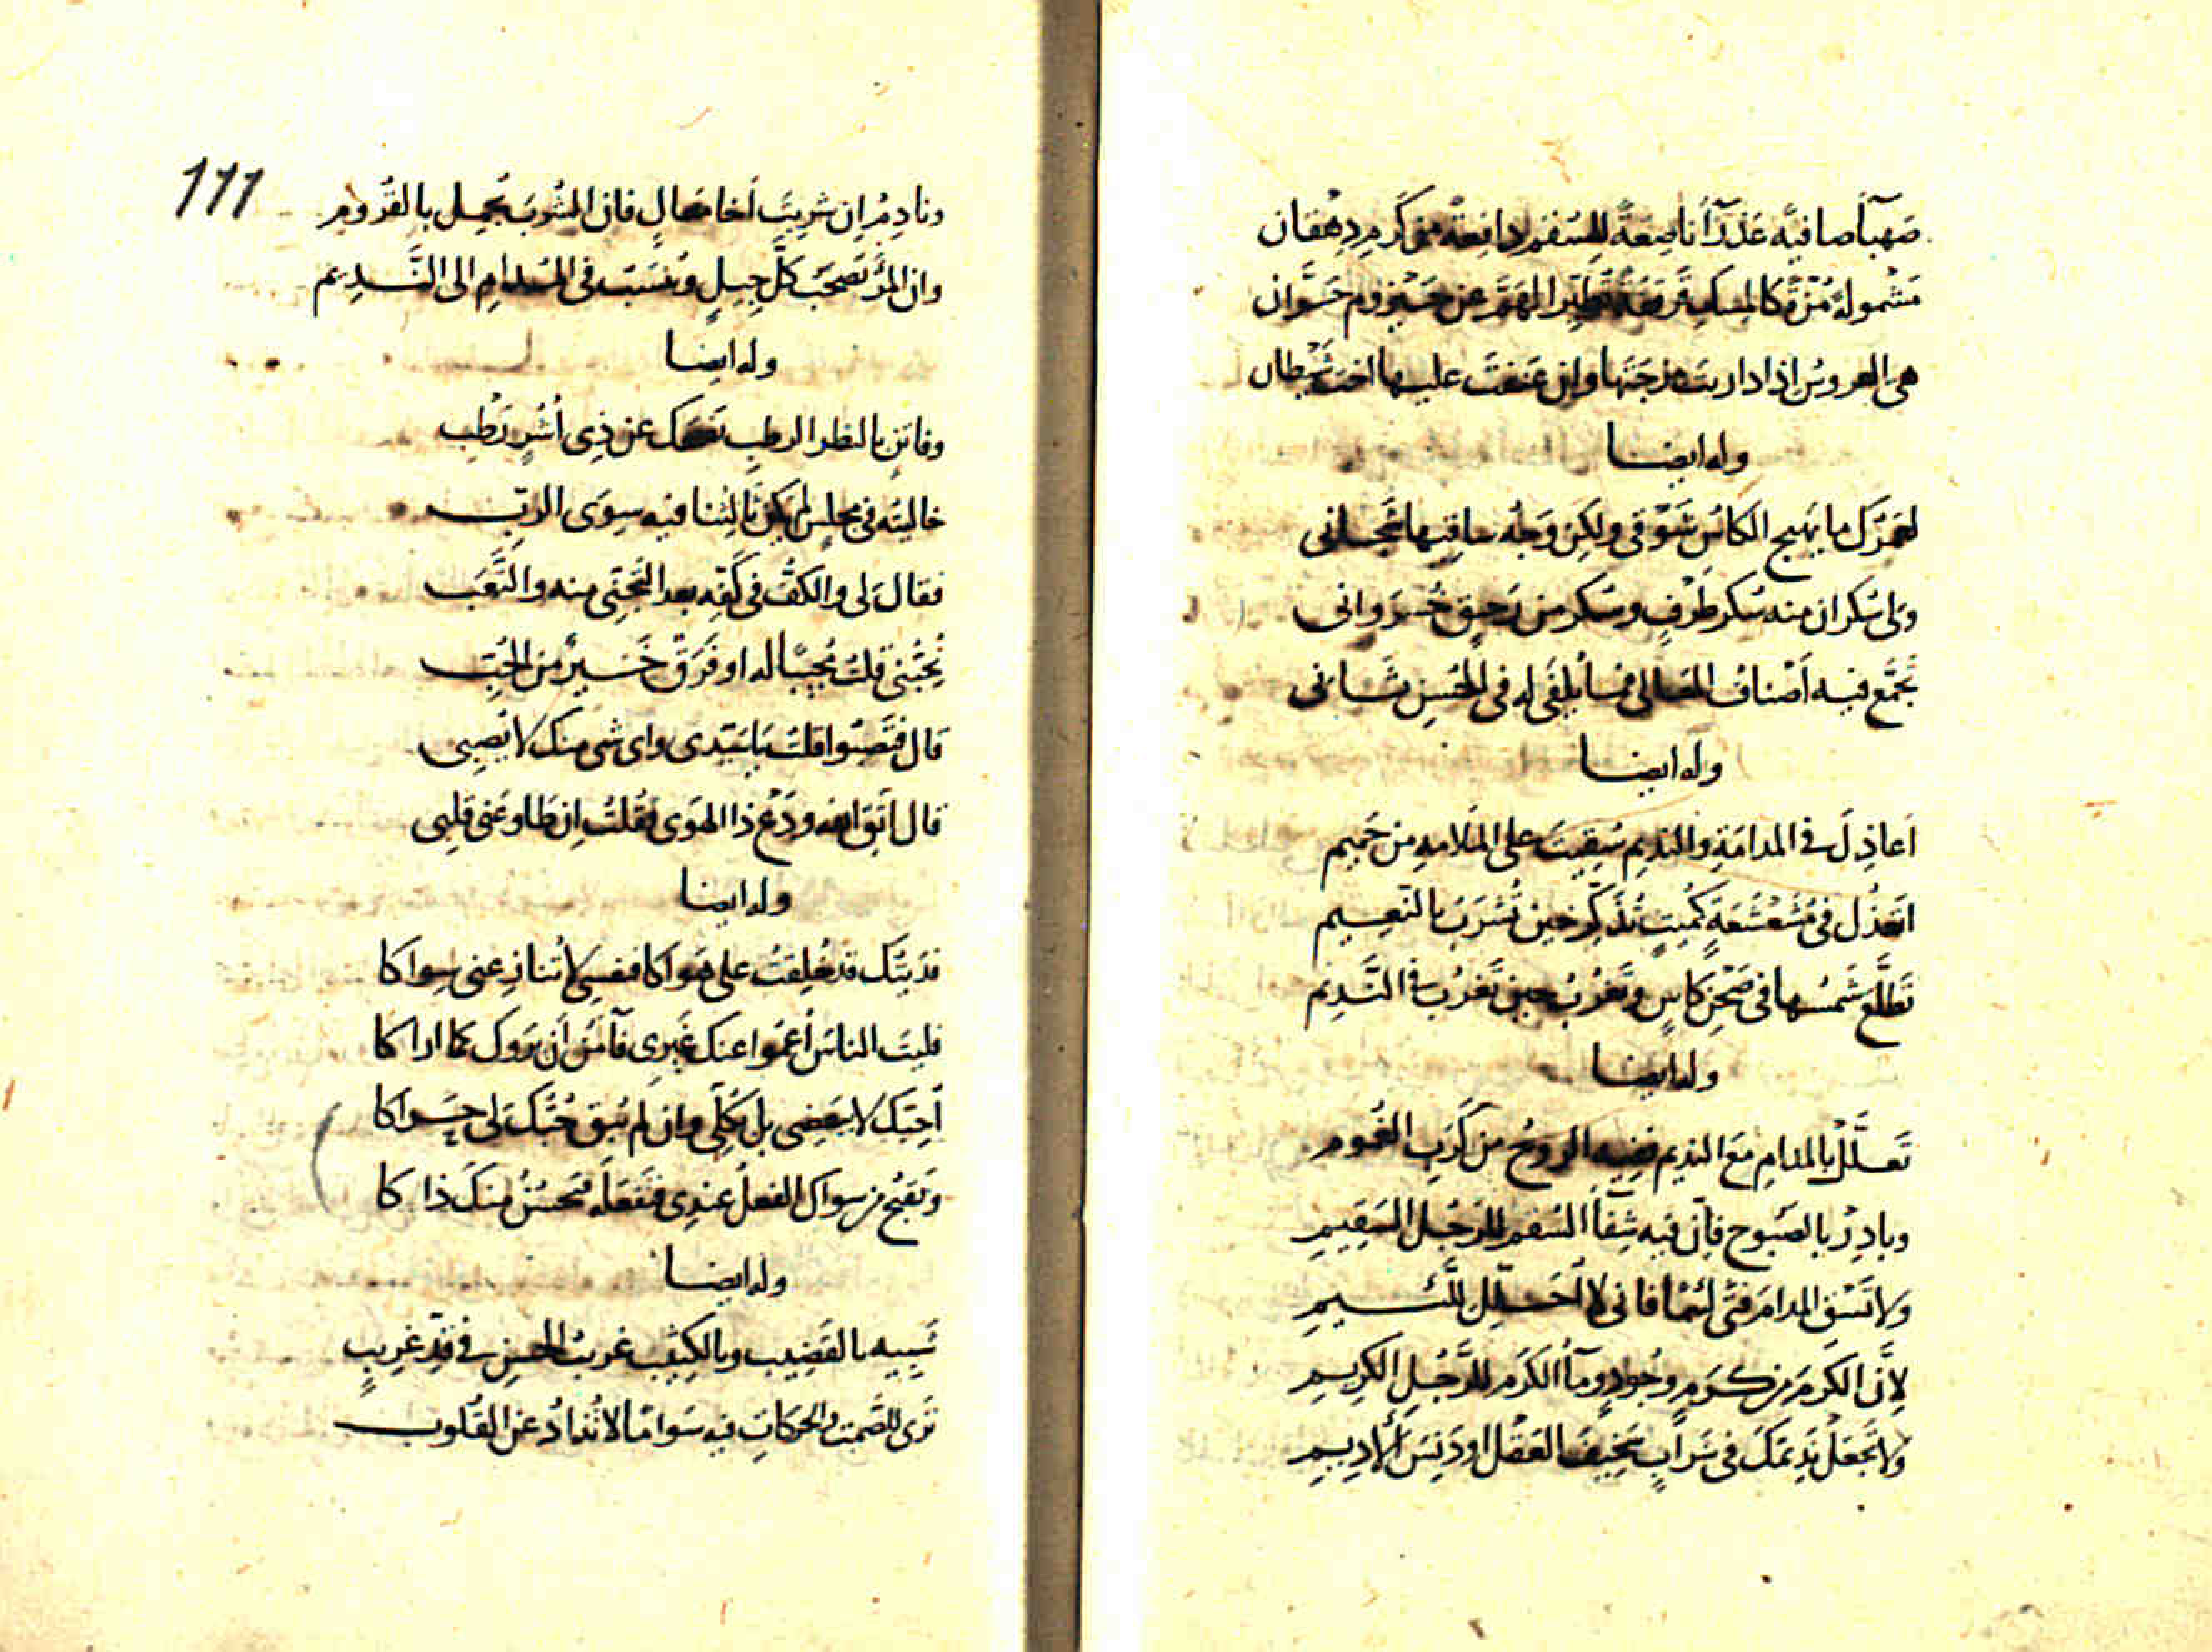 صهبآء صافيه عذرآء ناصعة للسقم دافعة من كرم دهقان
مشمولة مزة كالمسك تطير الهم عن حيزوم حران
هى العروس اذا داريت مزجتها وان عنفت عليها اخت شيطان
وله ايضا
لعمرك ما يهيج الكاس شوقى ولكن وجه ساقيها شجانى
ولى سكران منه سكر طرف وسكر من رحيق خسروانى
تجمع فيه اصناف المعالى فما يلفى له فى الحسن ثانى
وله ايضا
اعاذل فى المدامة والنديم سقيت على الملامه من حميم
اتعذل فى مشعشعة كميت تذكر حين تشرب بالنعيم
تطلع شمسها فى صحن كاس وتغرب حين تغرب فى النديم
وله ايضا
تعلل بالمدام مع النديم ففيه الروح من كرب الغموم
وبادر بالصبوح فان فيه شفآء السقم للرجل السقيم
ولا تسق المدام فتى لئيما فانى لا احلل للئيم
لان الكرم من كرم وجود ومآء الكرم للرجل الكريم
ولا تجعل نديمك فى شراب سخيف العقل او دنس الاديم
111
ونادم ان شربت اخا معال فان الشرب يجمل بالقروم
وان المرء تصحب كل جيل وينسب فى المدام الى النديم
وله ايضا
وفاتن بالنظر الرطب تضحك عن ذى اشر رطب
خاليته فى مجلس لم يكن ثالثنا فيه سوى الرب
فقال لى والكف فى كفه بعد التجنى منه والتعب
تحبنى قلت مجيبا له او فرق خير من الحب
قال فتصبوا قلت يا سيدى واى شى منك لا يصبى
قال اتق الله ودع ذا الهوى فقلت ان طاوعنى قلبى
وله ايضا
فديتك قد خلقت على هواكا فنفسى لا تنازعنى سواكا
فليت الناس اعموا عنك غيرى فآمن ان يروك كما اراكا
احبك لا ببعضى بل بكلى وان لم يبق حبك لى حراكا
ويقبح من سواك الفعل عندى فتفعله فيحسن منك ذاكا
وله ايضا
شبيه بالقضيب وبالكثيب غريب الحسن فى قد غريب
ترى للصمت والحركات فيه سواما لا تذاد عن القلوب